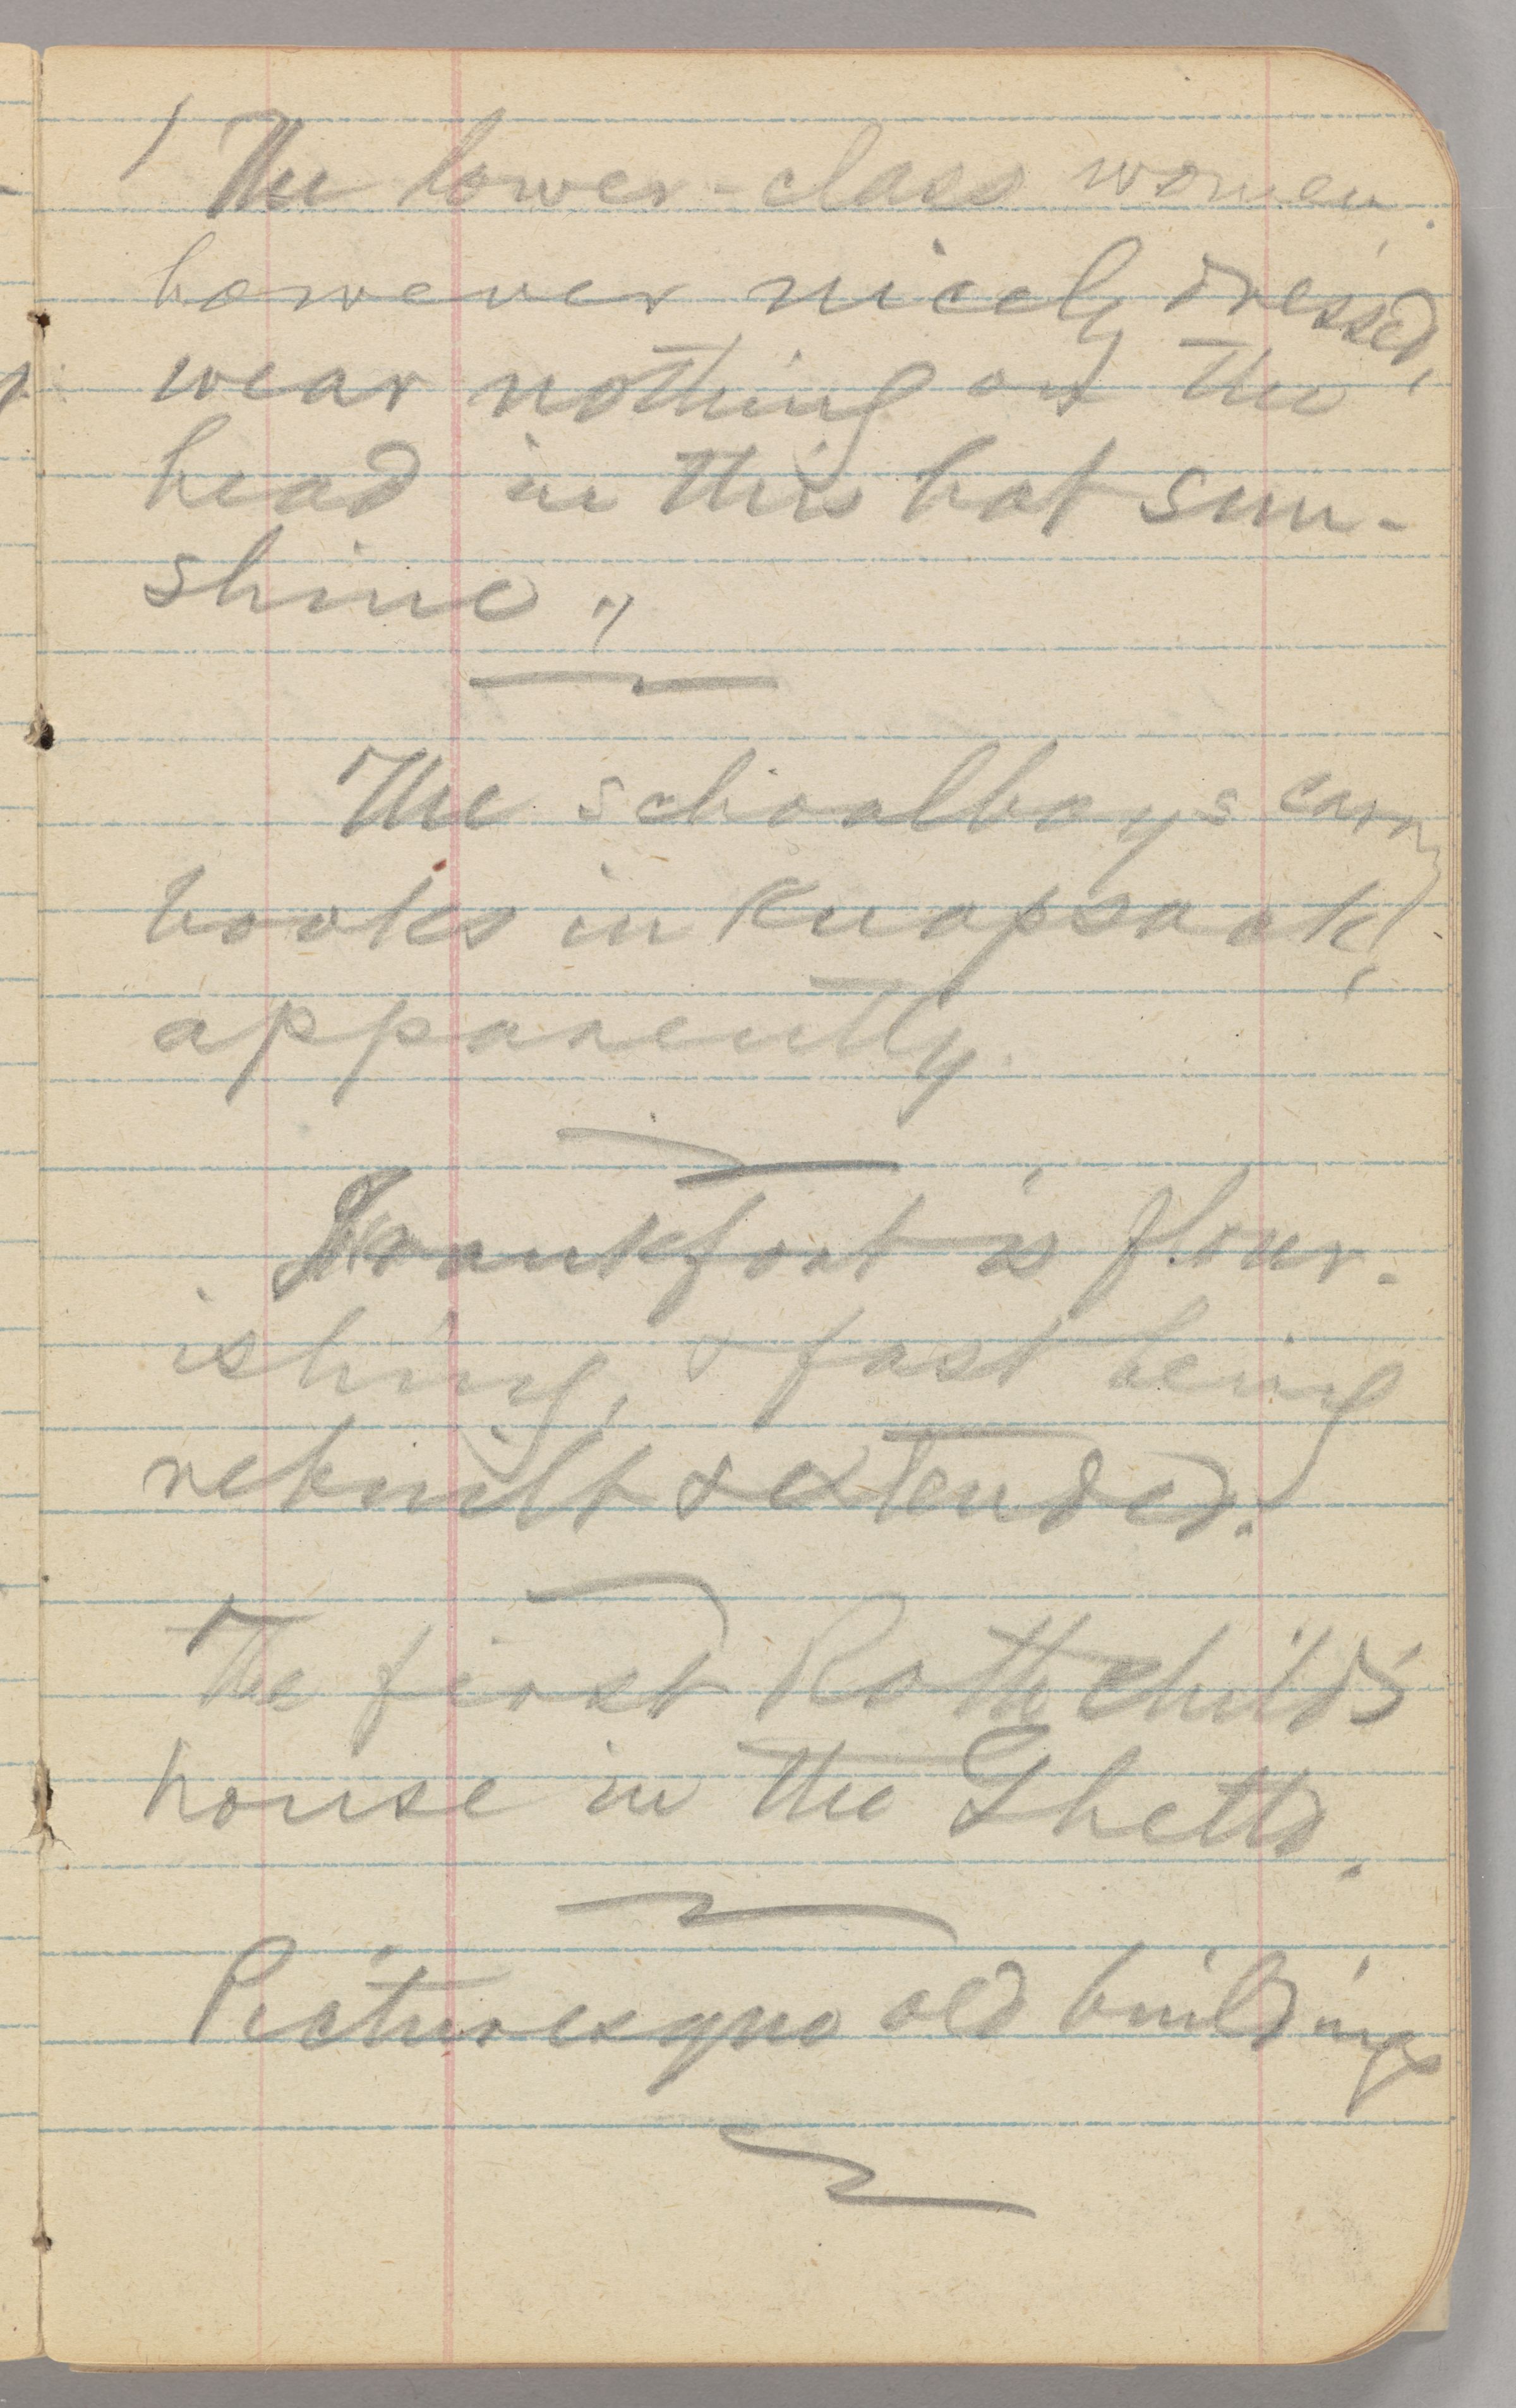 / The lower-class women,
however nicely dressed,
wear nothing on the
head in this hot sun-
shine.
The schoolboys carry
books in knapsack,
apparently.
Frankfort is flour-
ishing, & fast being
rebuilt & extended.
The first Rothschild's
house in the Ghetto.
Picturesque old buildings